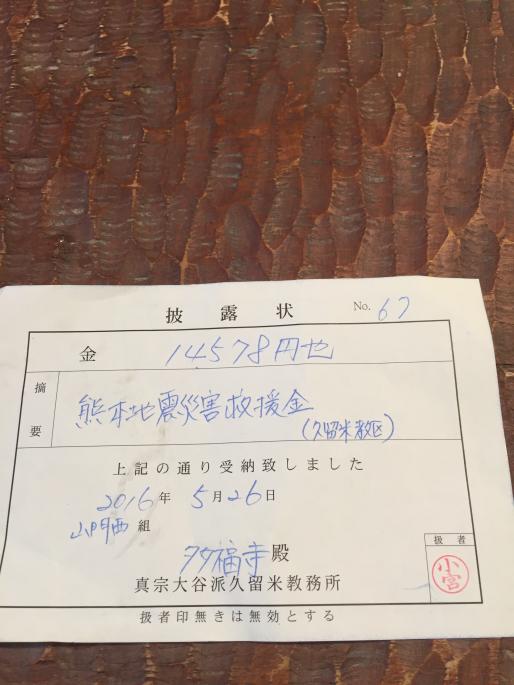 披露状 No. 67
金 14578円也
摘要 熊本地震災害救援金
(久留米教区)
上記の通り受納致しました
2016年 5月26日
山門西組
多福寺殿
扱者
小宮
真宗大谷派久留米教務所
扱者印無きは無効とする